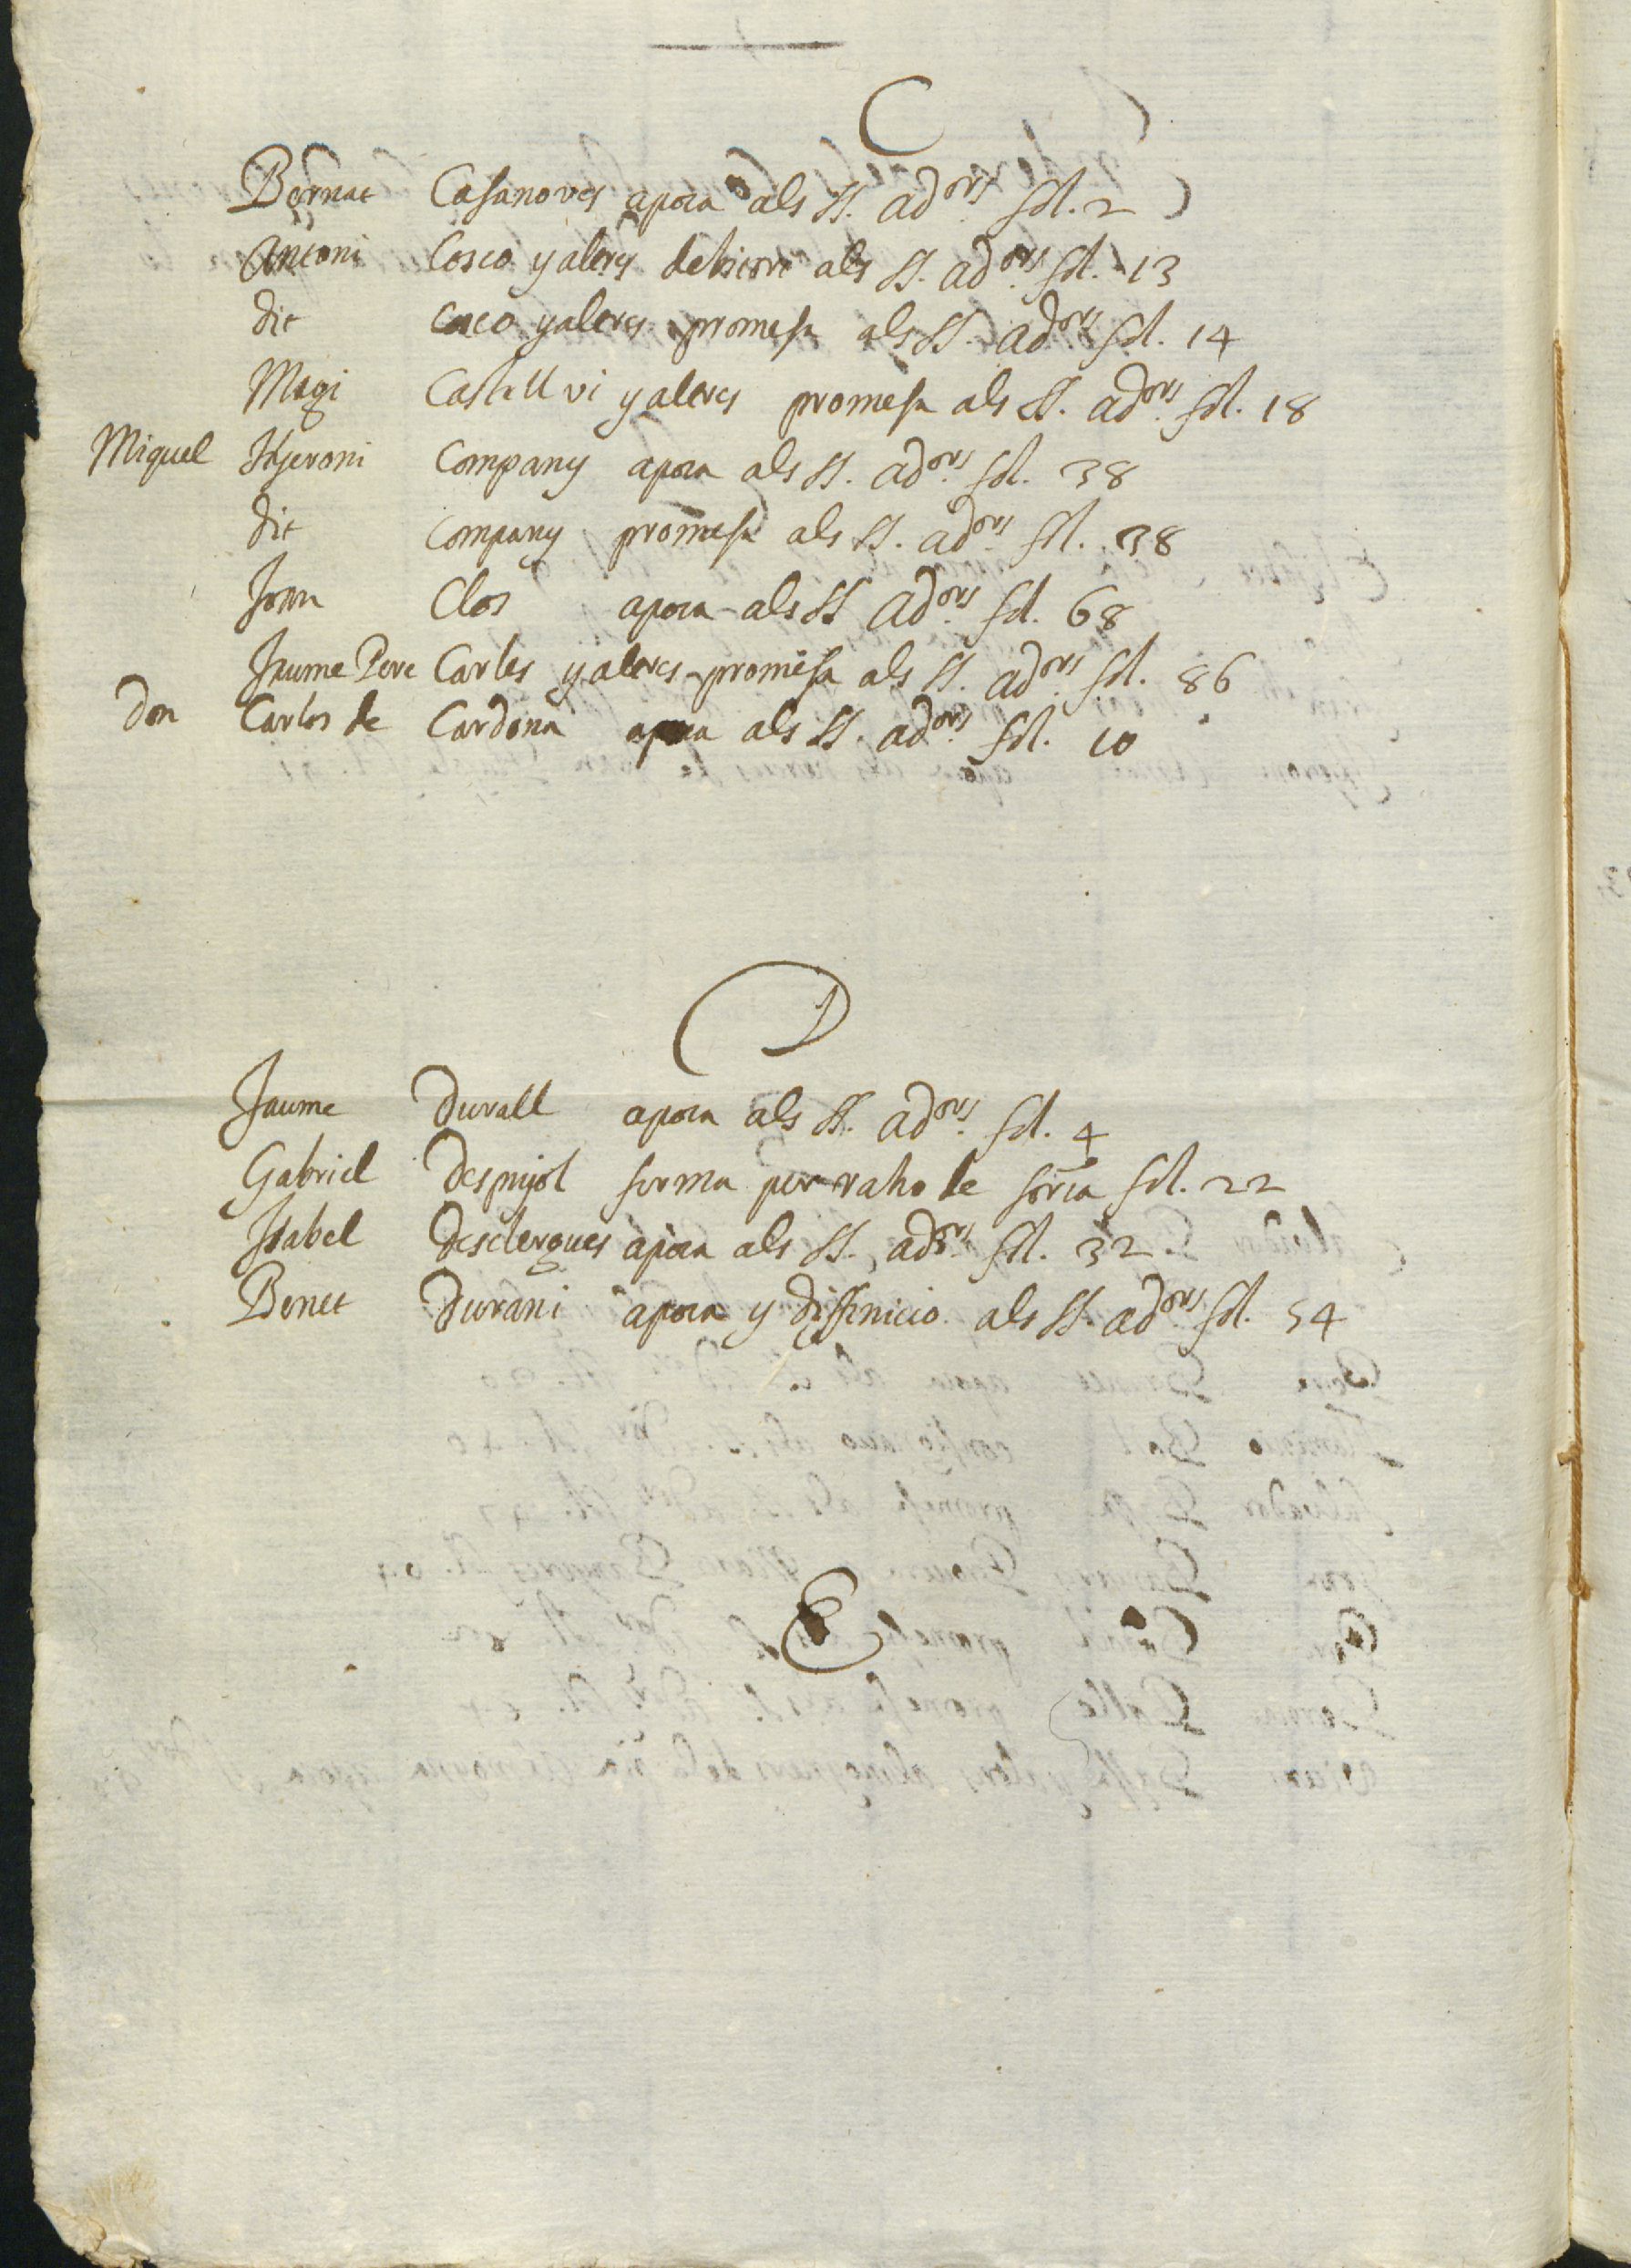 C
Bernat Casanoves apoca als SS. ad.ors fol. 2
Antoni Cosco y altres als SS. ad.ors fol. 13
dit y altres promesa als SS. ad.ors fol. 14
Magi Castellvi y altres promesa als SS. ad.ors fol. 18
Miquel Hyeroni Company apoca als SS. ad.ors fol. 38
dit Company promesa als SS. ad.ors fol. 38
Joan Clos apoca als SS ad.ors fol. 68
Jaume Pere Carles y altres promesa als SS. ad.ors fol. 86
Don Carlos de Cardona apoca als SS. ad.ors fol. 10
D
Jaume Durall apoca als SS. ad.ors fol. 4
Gabriel Despujol ferma per raho de fol. 22
Isabel Desclergues apoca als SS. ad.ors fol. 32.
Benet Durani apoca y diffinicio als SS. ad.ors fol. 54
E